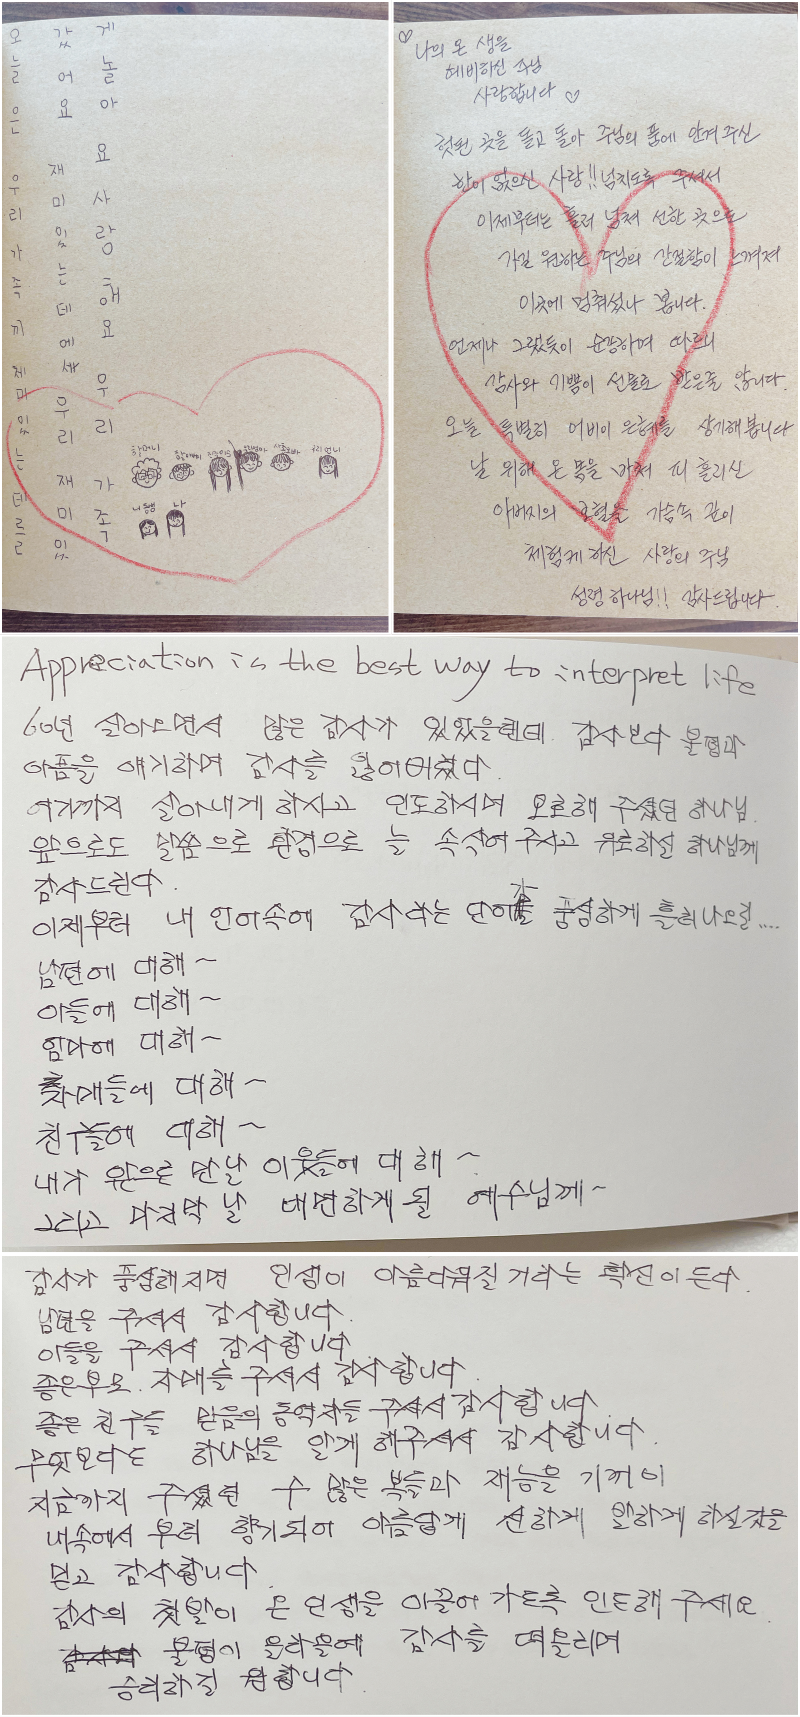 오늘은 우리가족끼 제미있는데를
갔어요 재미있는데에세 우리 재미있
게 놀아요 사랑해요 우리 가족
할머니
할아버지
사촌오빠
우리언니
내동생
나
나의 온 생을
예비하신 주님
사랑합니다
헛된 곳을 돌고 돌아 주님의 품에 안겨 주신
한이 없으신 사랑!! 넘치도록 주셔서
이제부터는 흘러 넘쳐 선한 곳으로
가길 원하는 주님의 간절함이 느껴져
이곳에 멈춰섰나 봅니다.
언제나 그랬듯이 순종하며 따르니
감사와 기쁨이 선물로 받은줄 압니다.
오늘 특별히 어버이 은혜를 상기해봅니다
날 위해 온 몸을 바쳐 피 흘리신
아버지의 보혈을 가슴속 깊이
체험케 하신 사랑의 주님
성령 하나님!! 감사드립니다.
Appreciation is the best way to interpret life
60년 살아오면서 많은 감사가 있었을텐데. 감사보다 불평과
아픔을 얘기하며 감사를 잃어버렸다.
여기까지 살아내게 하시고 인도하시며 보호해 주셨던 하나님.
앞으로도 말씀으로 환경으로 늘 속삭여 주시고 위로하실 하나님께
감사드린다.
이제부터 내 언어속에 감사라는 단어가 풍성하게 흘러나오길....
남편에 대해~
아들에 대해~
엄마에 대해~
자매들에 대해~
친구들에 대해~
내가 앞으로 만날 이웃들에 대해~
그리고 마지막 날 대면하게 될 예수님께~
감사가 풍성해지면 인생이 아름다워질 거라는 확신이 든다.
남편을 주셔서 감사합니다.
아들을 주셔서 감사합니다
좋은부모. 자매를 주셔서 감사합니다.
좋은 친구들 믿음의 동역자들 주셔서 감사합니다.
무엇보다도 하나님을 알게 해주셔서 감사합니다.
지금까지 주셨던 수 많은 복들과 재능을 기꺼이
내속에서 부터 향기되어 아름답게 선하게 말하게 하실것을
믿고 감사합니다.
감사의 첫발이 온 인생을 이끌어 가도록 인도해 주세요.
불평이 올라올때 감사를 떠올리며
승리하길 원합니다.